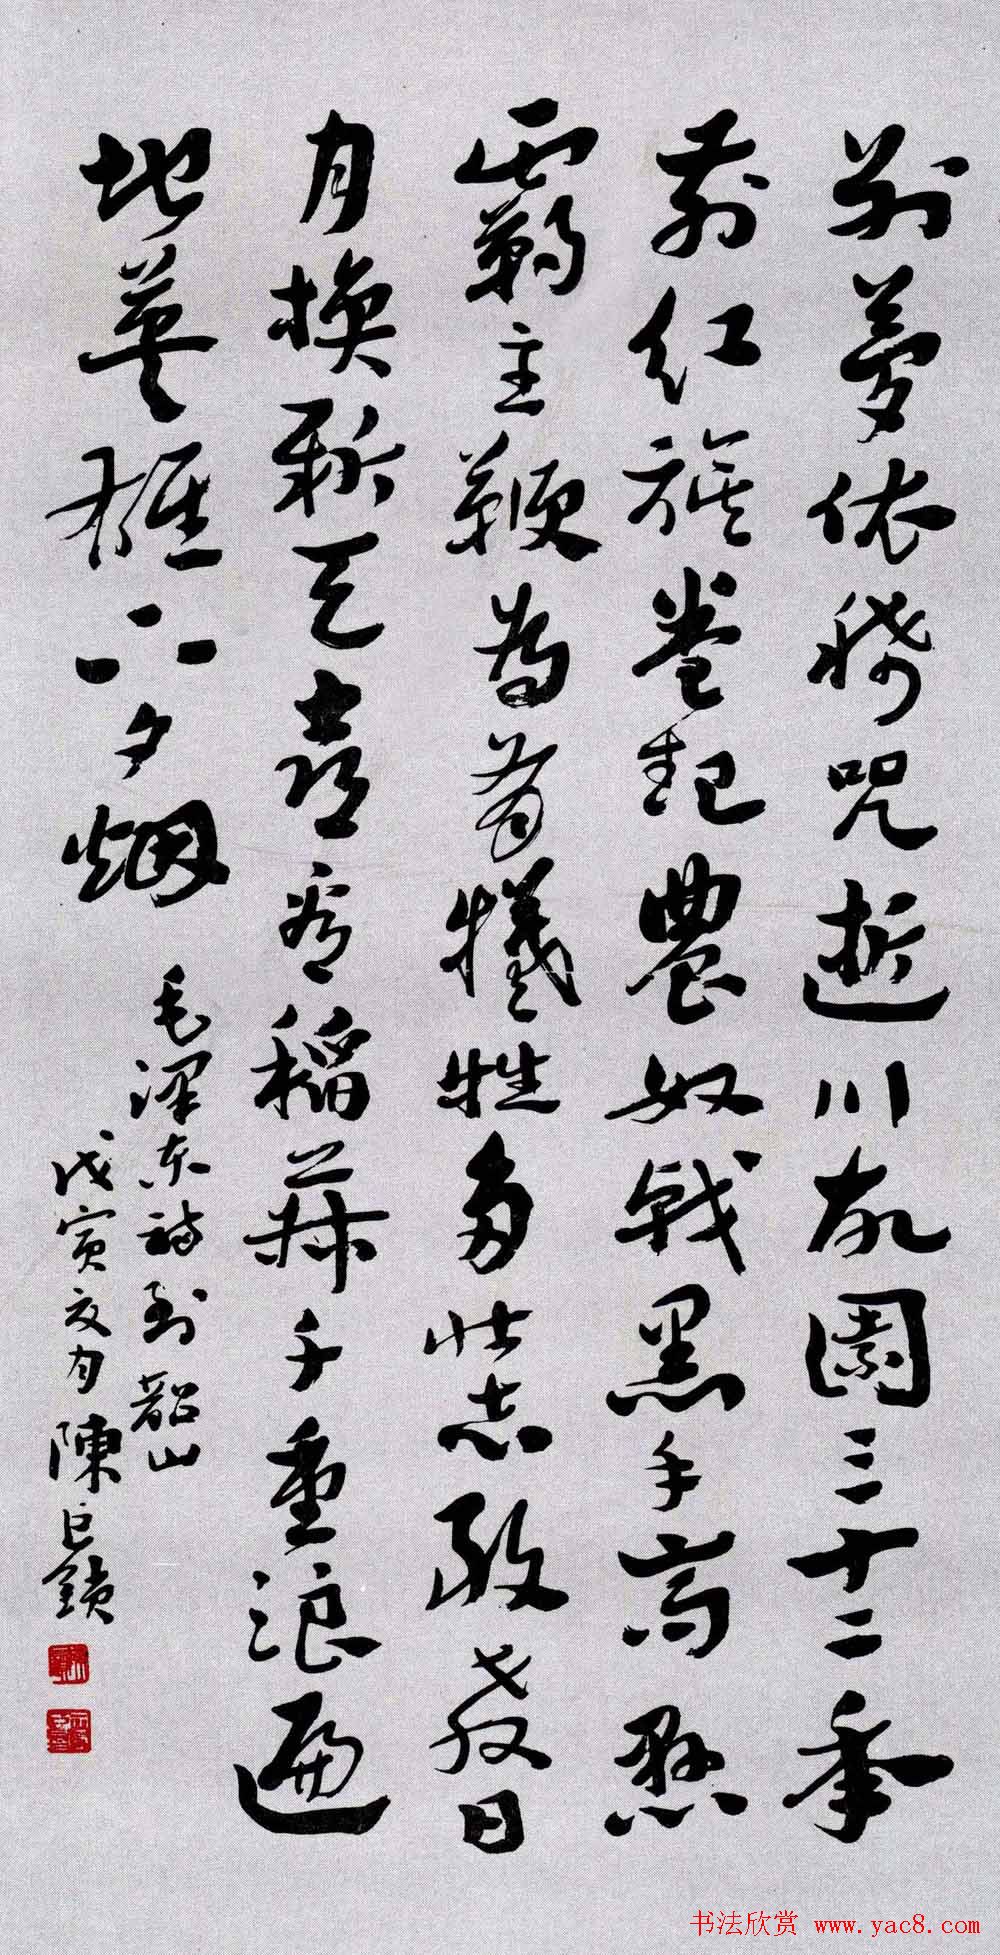 別夢依稀咒逝川故園三十二秊
前红旗卷起農奴戟黑手高懸
霸主鞭為有犧牲多壮志敢教日
月换新天喜看稻菽千重浪遍
地英雄下夕烟
毛泽东詩到韶山
戊寅夏月陳巨鎖
书法欣赏 www.yac8.com